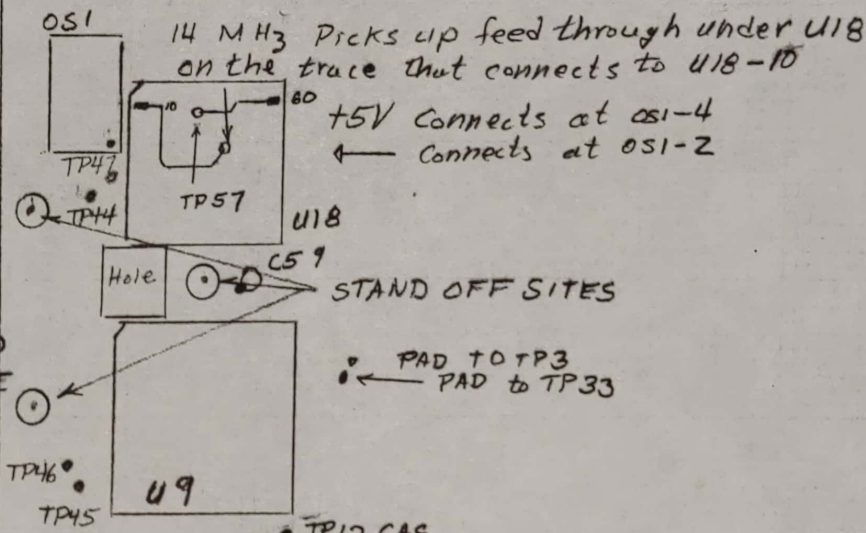 OS1
14 MHz Picks up feed through under U18
on the trace that connects to U18-10
10
60
+5V Connects at OS1-4
Connects at OS1-2
TP47
TP57
TP44
U18
C59
Hole
STAND OFF SITES
PAD TO TP3
PAD to TP33
TP46
U9
TP45
CAS